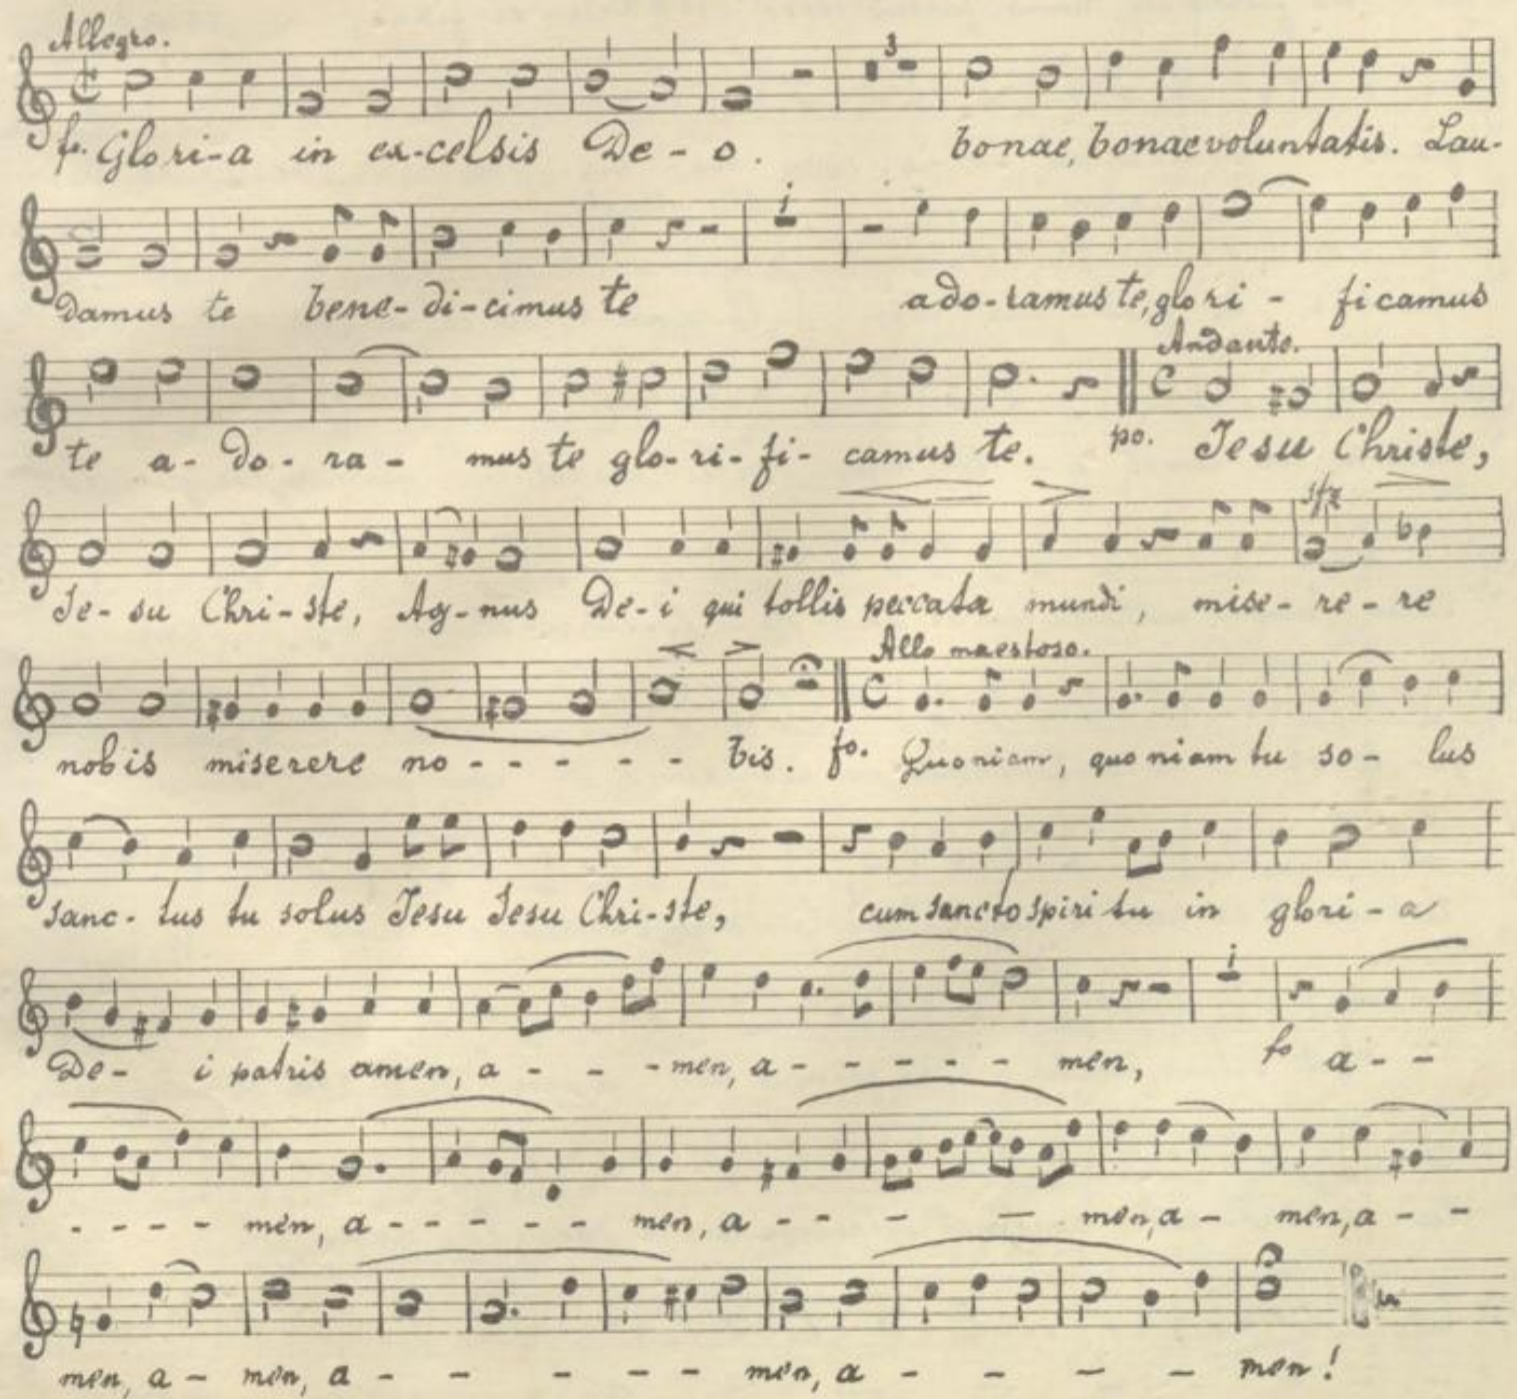 Allegro.
3
fo. Glo ri-a in ex-celsis De-o. bonae, bonae voluntatis. Lau-
1
damus te bene-di-cimus te ado-ramus te, glo ri - ficamus
Andante.
te a-do-ra- mus te glo-ri-fi- camus te. po. Jesu Christe,
sfz
Je-su Chri-ste, Ag-nus De-i qui tollis peccata mundi, mise-re-re
Allo maestoso.
nobis miserere no - - - - - bis. fo. Quoniam, quoniam tu so- lus
sanc-tus tu solus Jesu Jesu Chri-ste, cum sancto spiri tu in glori-a
1
De- i patris amen, a - - - men, a - - - - - - men, fo a - -
- - - - men, a - - - - - men, a - - - - men, a - men, a - -
men, a - men, a - - - - - men, a - - - - men!